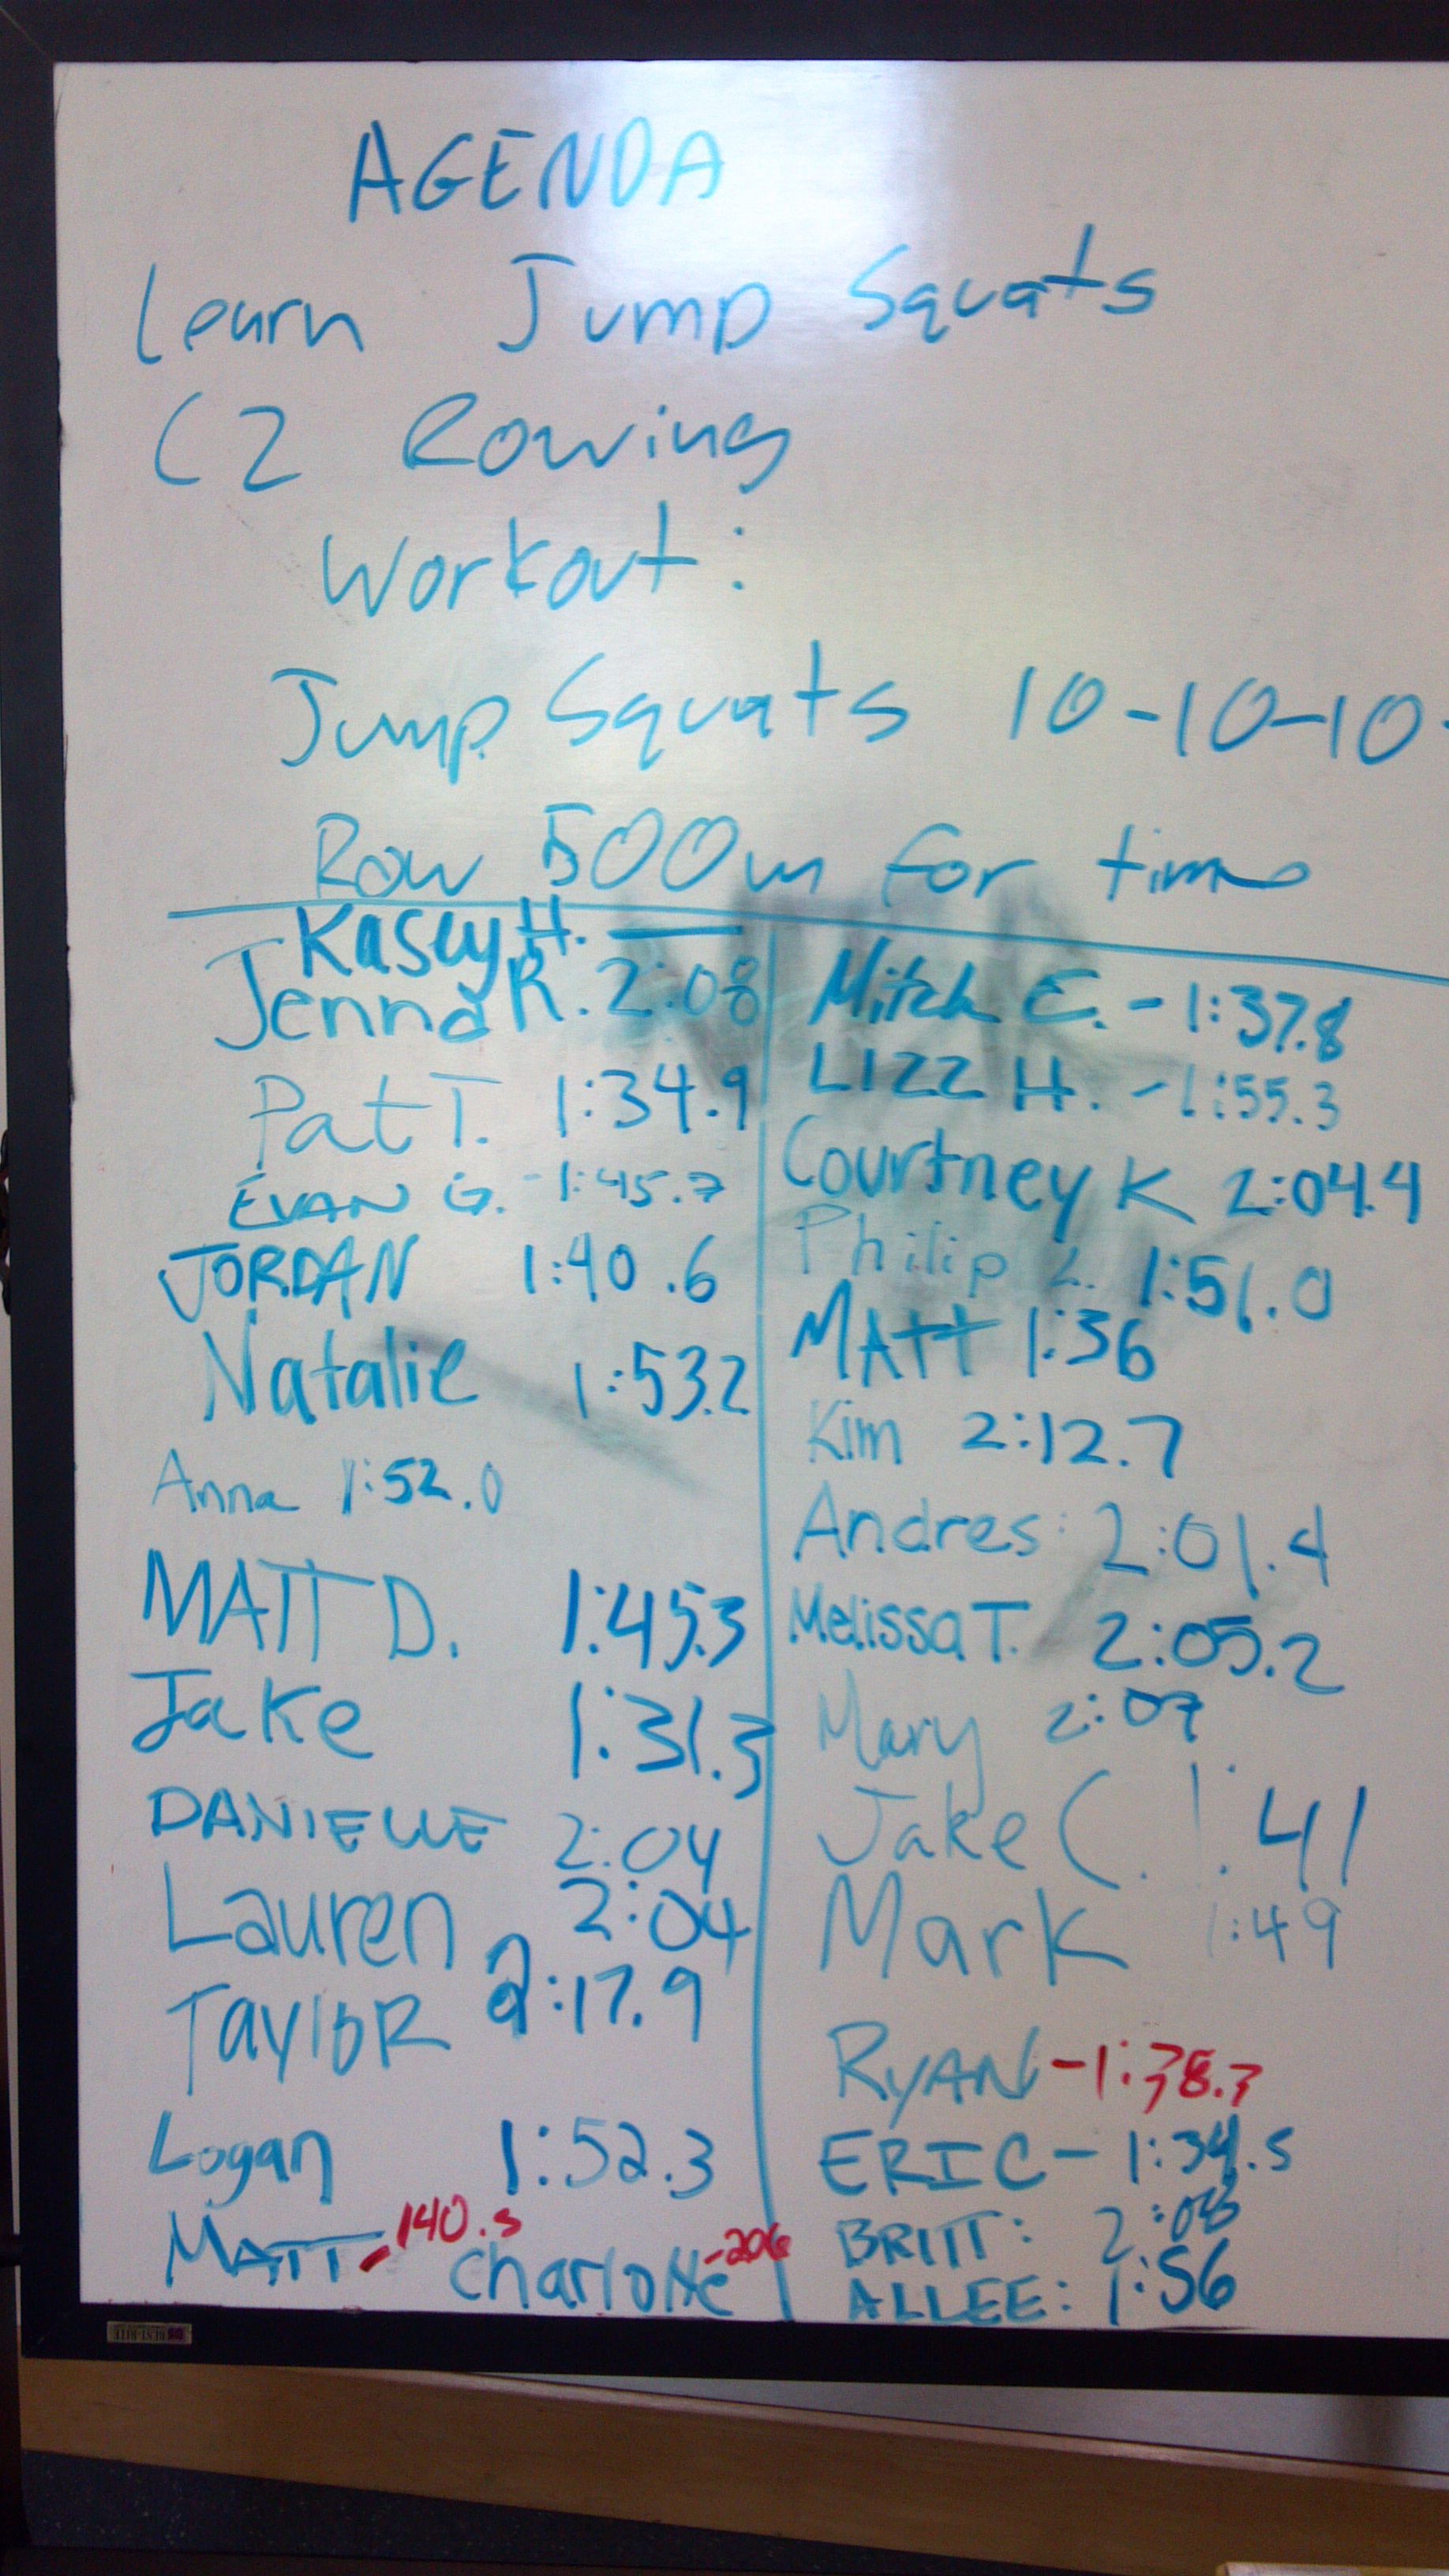 AGENDA
Learn Jump Squats
C2 Rowing
Workout:
Jump Squats 10-10-10-
Row 500m for time
Kasey H. —
Jenna R. 2:08
Pat T. 1:34.9
EVAN G. -1:45.7
JORDAN 1:40.6
Natalie 1:53.2
Anna 1:52.0
MATT D. 1:45.3
Jake 1:31.3
DANIELLE 2:04
Lauren 2:04
TayloR 2:17.9
Logan 1:52.3
MATT - 140.5 Charlotte -206
Mitch E. - 1:37.8
LIZZ H. - 1:55.3
Courtney K 2:04.4
Philip L. 1:51.0
MAtt 1:36
Kim 2:12.7
Andres: 2:01.4
Melissa T. 2:05.2
Mary 2:07
Jake C. 1:41
Mark 1:49
RyAN -1:38.3
ERIC - 1:34.5
BRITT: 2:08
ALLEE: 1:56
BEST-RITE